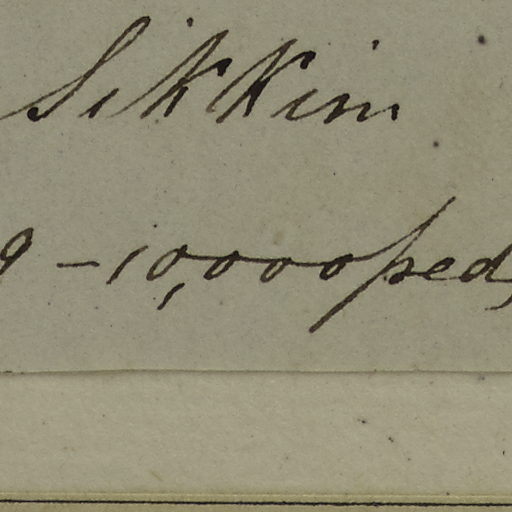 Sikkim
9 - 10,000 ped,